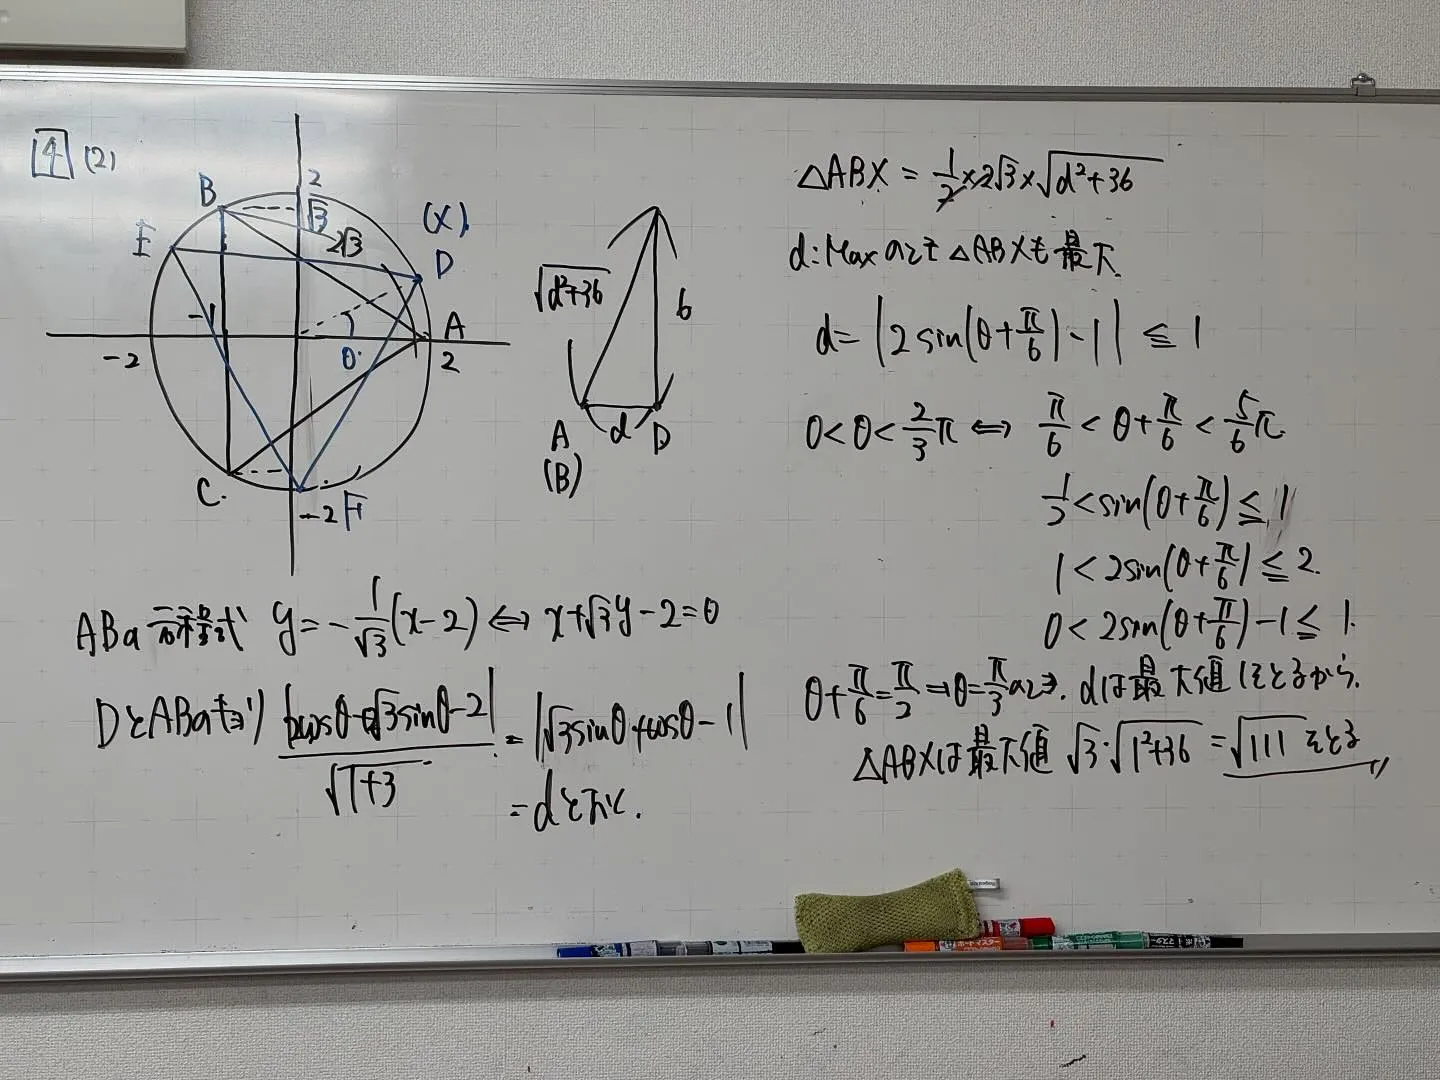 4 (2)
B
E
2
√3
2√3
(X)
D
A
-1
-2
θ
2
C
-2
F
√d²+36
6
A
(B)
d
D
ABの方程式 y=-1/√3(x-2)⇔x+√3y-2=0
DとABのキョリ |2cosθ+2√3sinθ-2|/√1+3=|√3sinθ+cosθ-1|
=dとおく.
△ABX=1/2×2√3×√d²+36
d:Maxのとき△ABXも最大
d=|2sin(θ+π/6)-1|≦1
0<θ<2/3π⇔π/6<θ+π/6<5/6π
1/2<sin(θ+π/6)≦1
1<2sin(θ+π/6)≦2.
0<2sin(θ+π/6)-1≦1
θ+π/6=π/2⇒θ=π/3のとき.dは最大値1をとるから.
△ABXは最大値√3・√1²+36=√111をとる